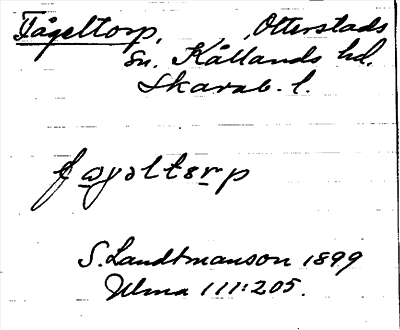 Fågeltorp, Otterstads
sn. Kållands hd.
Skarab. l.
S. Landtmanson 1899
Ulma 111:205.